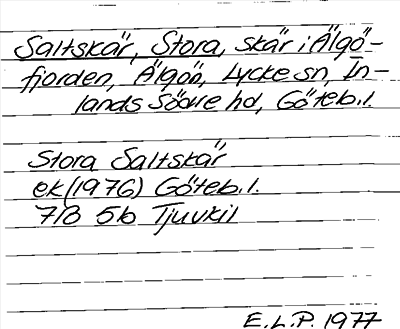 Saltskär, Stora, skär i Älgö-
fjorden, Älgön, Lycke sn, In-
lands Södre hd, Göteb.l.
Stora Saltskär
ek (1976) Göteb.l.
7B 5b Tjuvkil
E.L.P. 1977